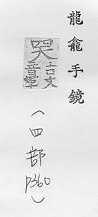 龍龕手鏡
古文
音
(四部
p360)